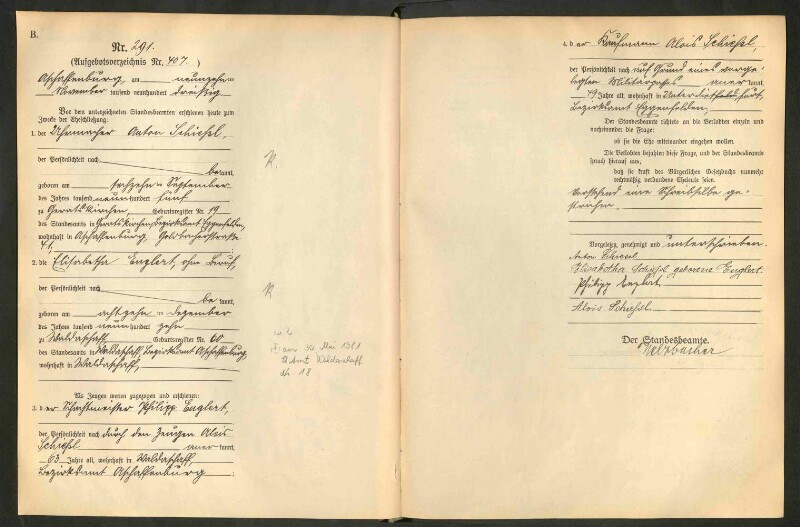 B.
Nr. 291.
(Aufgebotsverzeichnis Nr. 407.)
Aschaffenburg, am neunzehnten
November tausend neunhundert dreißig
Vor dem unterzeichneten Standesbeamten erschienen heute zum
Zwecke der Eheschließung:
1. der Uhrmacher Anton Schießl,
der Persönlichkeit nach
bekannt,
geboren am sechzehnten September
des Jahres tausend neunhundert fünf
zu Geratskirchen, Geburtsregister Nr. 19
des Standesamts in Geratskirchen, Bezirksamt Eggenfelden,
wohnhaft in Aschaffenburg, Goldbacherstraße
41,
2. die Elisabetha Englert, ohne Beruf,
der Persönlichkeit nach
bekannt,
geboren am achtzehnten Dezember
des Jahres tausend neunhundert zehn
zu Waldaschaff, Geburtsregister Nr. 60
des Standesamts in Waldaschaff, Bezirksamt Aschaffenburg,
wohnhaft in Waldaschaff,
am 30. Mai 1981
St.Amt Waldaschaff
Nr. 18
Als Zeugen waren zugezogen und erschienen:
3. der Schachtmeister Philipp Englert,
der Persönlichkeit nach durch den Zeugen Alois
Schießl anerkannt,
63 Jahre alt, wohnhaft in Waldaschaff,
Bezirksamt Aschaffenburg
4. der Kaufmann Alois Schießl,
der Persönlichkeit nach auf Grund eines vorge-
legten Militärpasses anerkannt,
49 Jahre alt, wohnhaft in
Bezirksamt Eggenfelden,
Der Standesbeamte richtete an die Verlobten einzeln und
nacheinander die Frage:
ob sie die Ehe miteinander eingehen wollen.
Die Verlobten bejahten diese Frage, und der Standesbeamte
sprach hierauf aus,
daß sie kraft des Bürgerlichen Gesetzbuchs nunmehr
rechtmäßig verbundene Eheleute seien.
Vorstehend eine Schreibsilbe ge-
strichen.
Vorgelesen, genehmigt und unterschrieben.
Anton Schiessl
Elisabetha Schießl geborene Englert.
Philipp Englert
Alois Schießl
Der Standesbeamte.